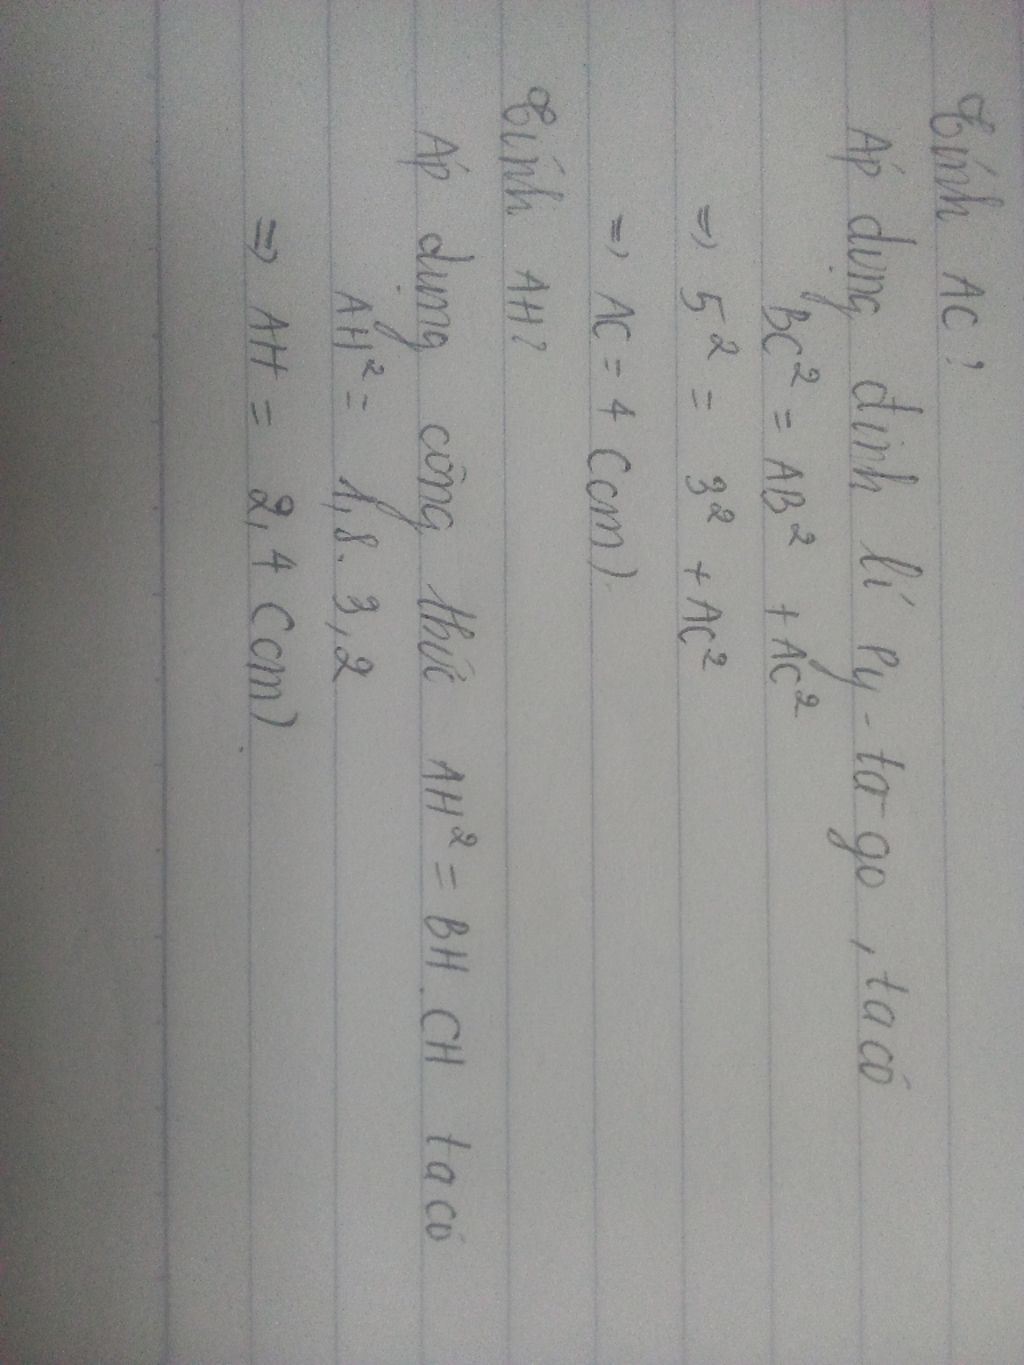 Tính AC?
Áp dụng định lí Py-ta-go, ta có
BC² = AB² + AC²
=> 5² = 3² + AC²
=> AC = 4 (cm)
Tính AH?
Áp dụng công thức AH² = BH.CH ta có
AH² = 1,8.3,2
=> AH = 2,4 (cm)